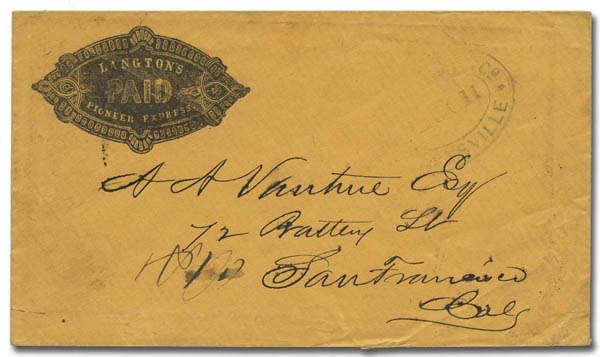 LANGTON'S
PAID
PIONEER EXPRESS
Co
11
SVILLE
A A Vantine Esq
72 Battery St
San Francisco
Cal